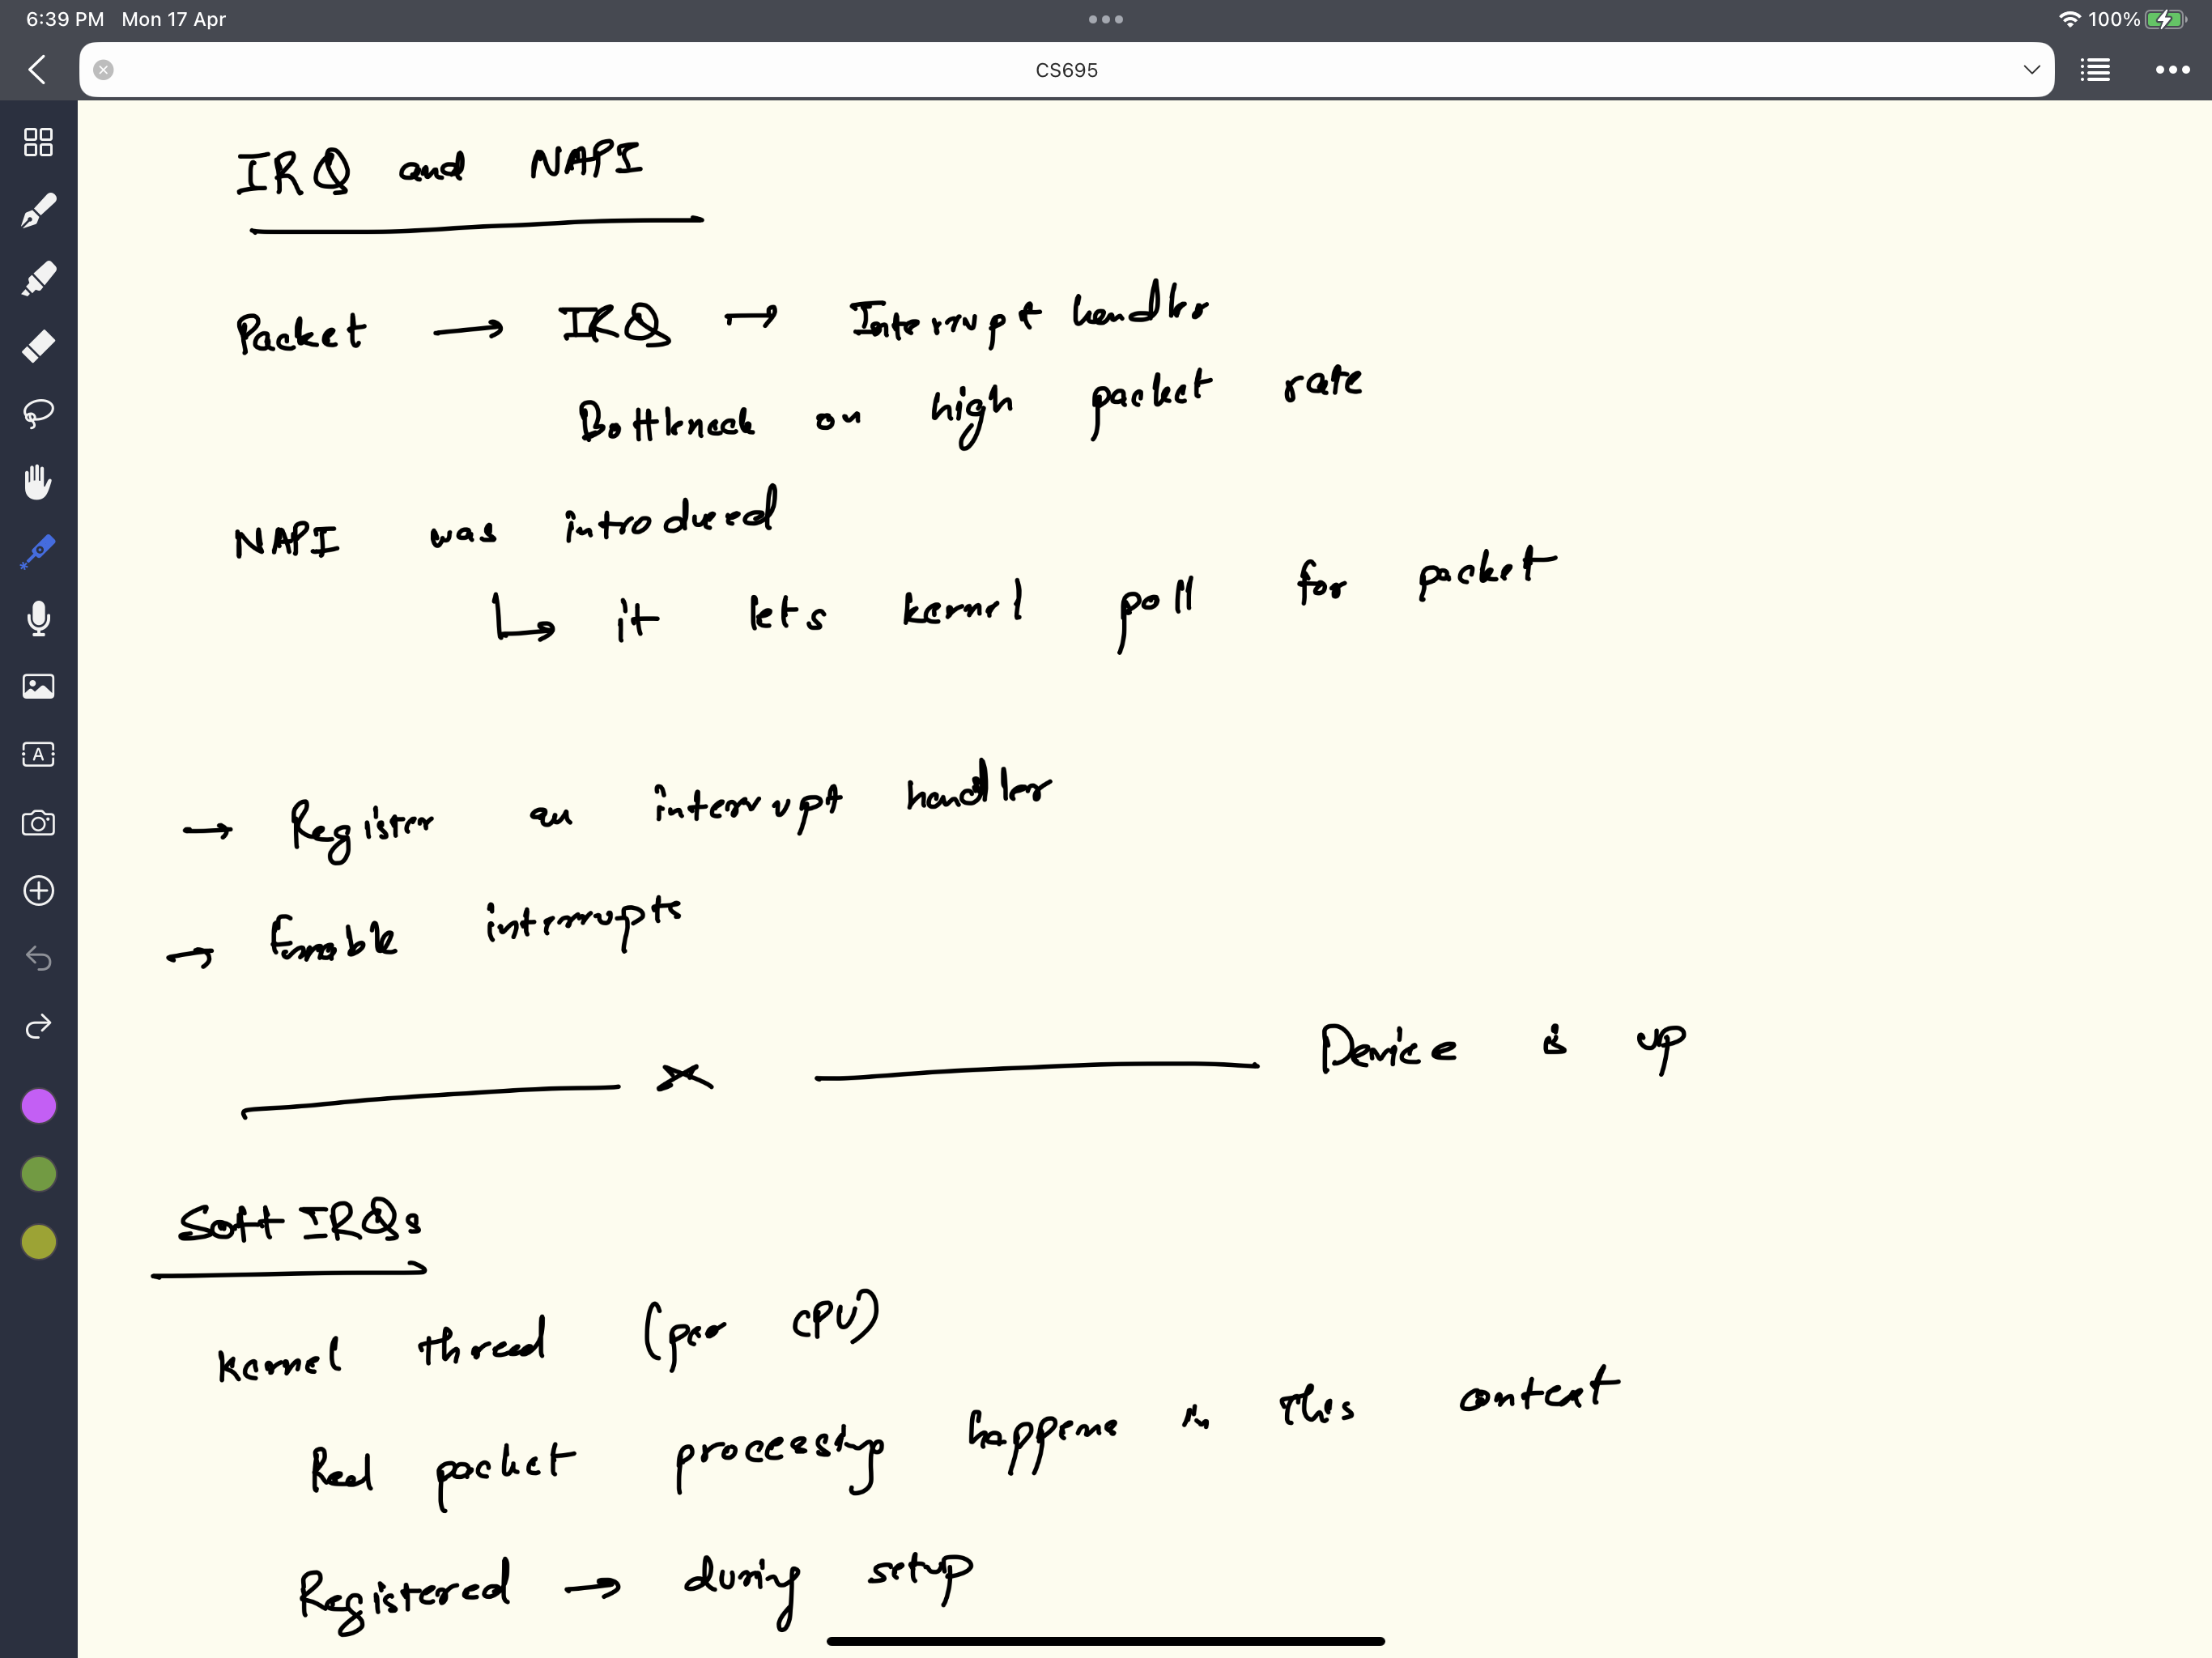 6:39 PM Mon 17 Apr 100%
CS695
IRQ and NAPI
Packet → IRQ → Interrupt handler
Bottleneck on high packet rate
NAPI was introduced
↳ it lets kernel poll for packet
→ Register an interrupt handler
→ Enable interrupts
x Device is up
Soft IRQs
Kernel thread (per CPU)
Real packet processing happens in this context
Registered → during setup